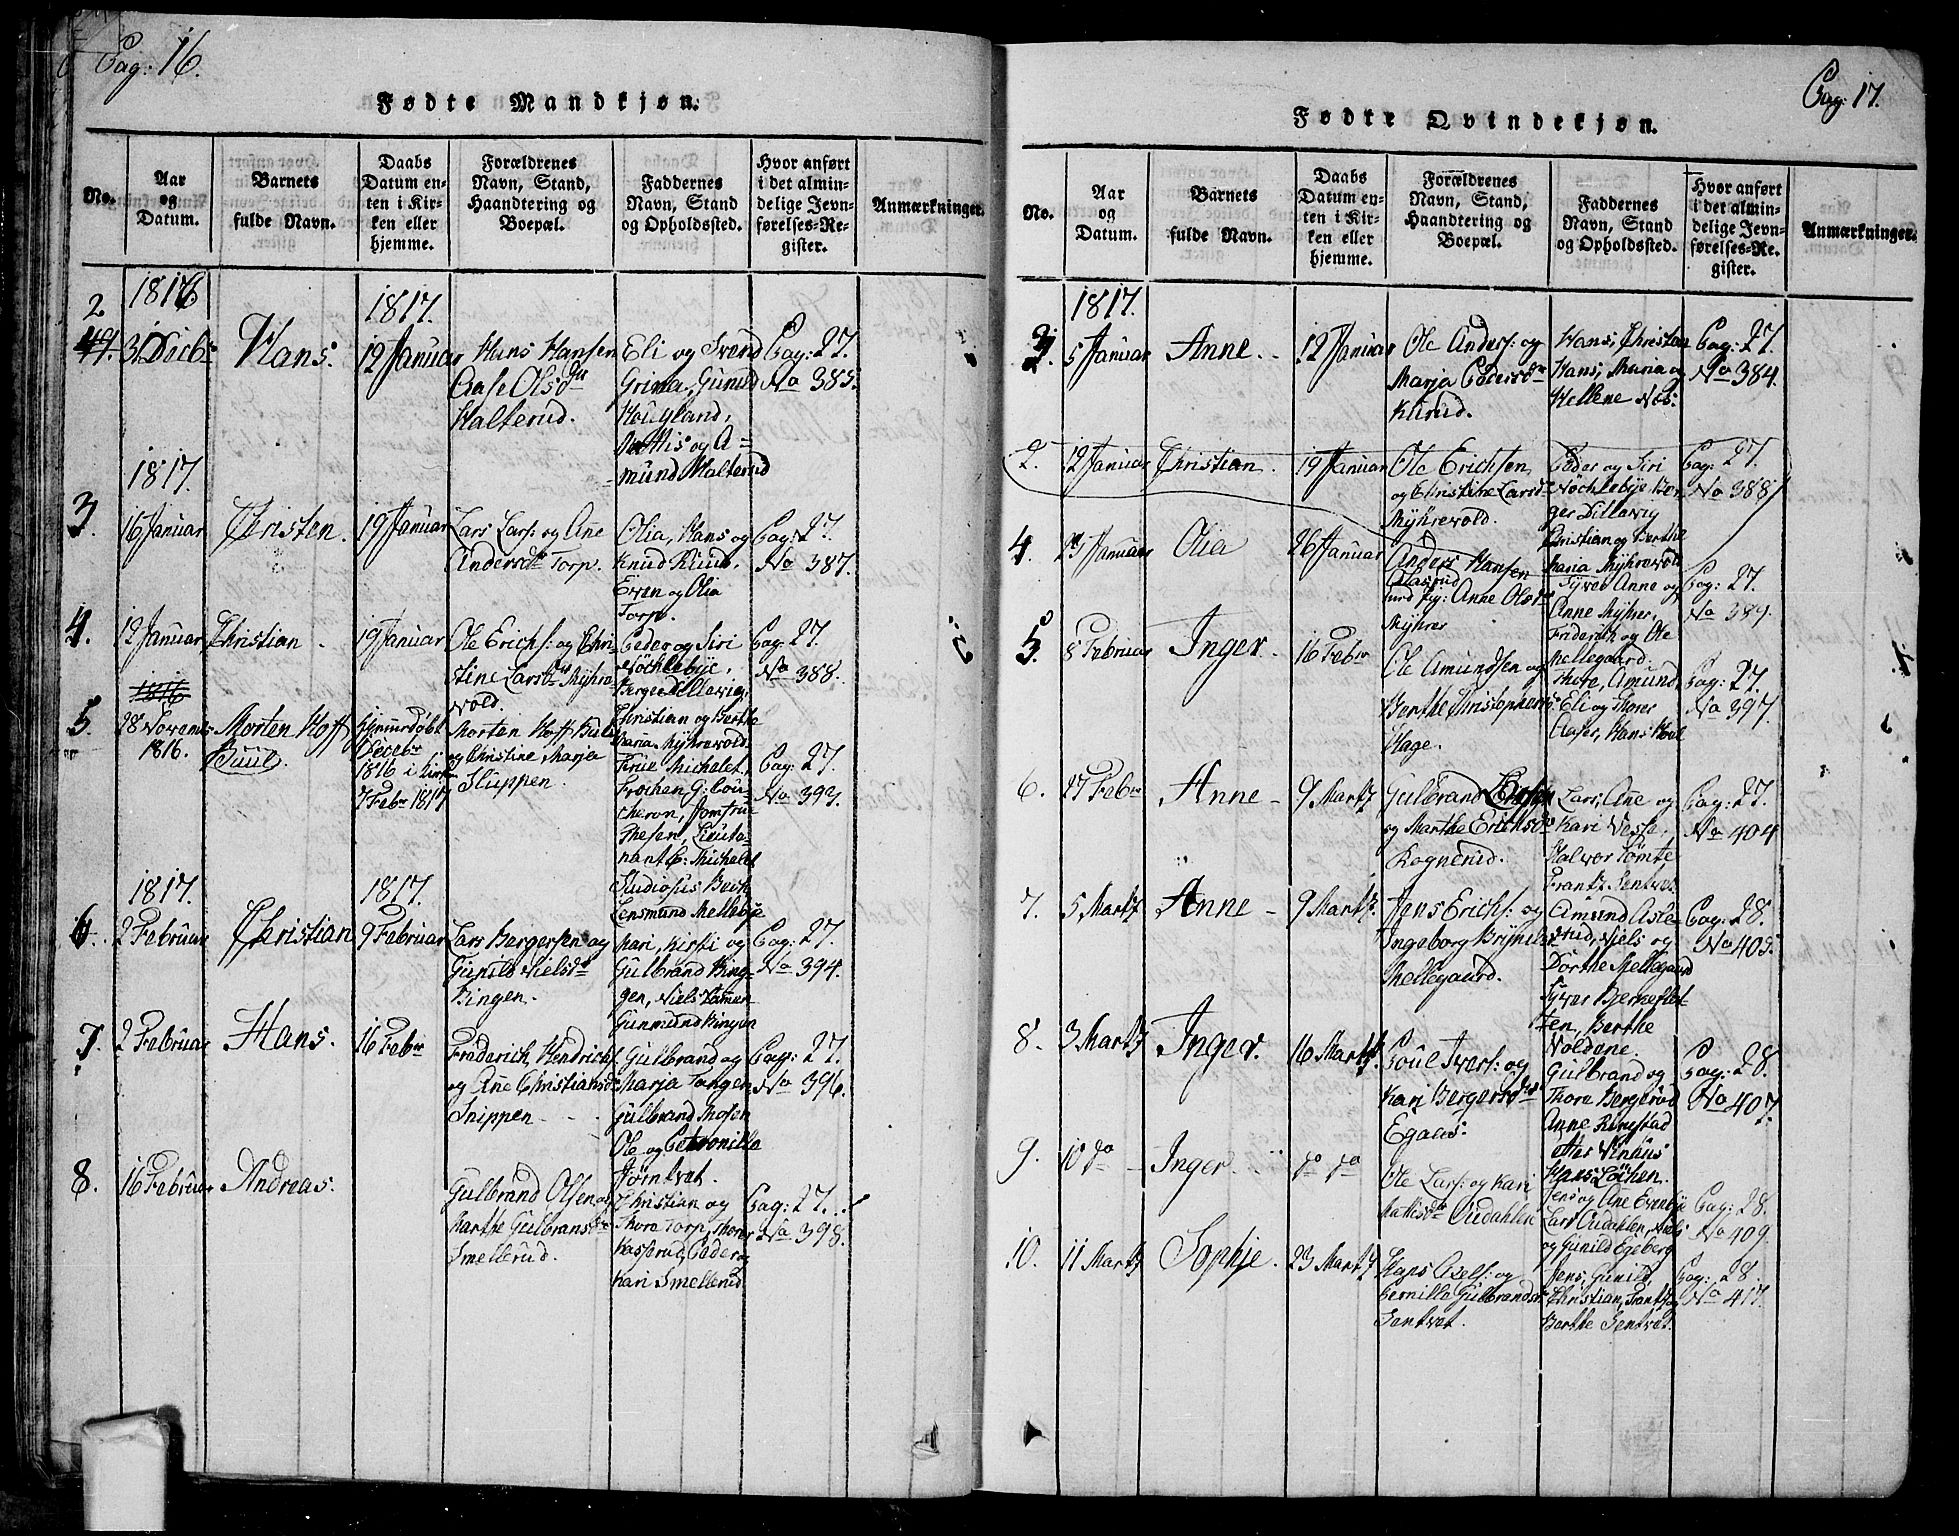 Pag: 16.
Fødte Mandkjøn.
No.
Aar
og
Datum.
Barnets
fulde Navn.
Daabs
Datum en-
ten i Kir-
ken eller
hjemme.
Forældrenes
Navn, Stand,
Haandtering og
Boepæl.
Faddernes
Navn, Stand
og Opholdssted.
Hvor anført
i det almin-
delige Jevn-
førelses-Re-
gister.
Anmærkninger.
1816
1817.
2
49.
31 Decbr
Hans.
12 Januar
Hans Hansen
Aase Olsdtr
Halterud.
Eli og Svend
Grima, Gunild
Hougland,
Mattis og A=
mund Halterud
Pag: 27.
No 385.
1817.
3.
16 Januar
Christen.
19 Januar
Lars Lars: og Ane
Andersdtr Torp.
Olia, Hans og
Knud Ruud,
Even og Olia
Torp.
Pag: 27.
No 387.
4.
12 Januar
Christian
19 Januar
Ole Erichs: og Chri
stine Larsdtr Myhre
vold.
Peder og Siri
Nøchlebye,
Berger Dillevig
Christian og Berthe
Maria Myhrevold.
Pag: 27.
No 388.
1816
5.
28 Novemb
1816.
Morten Hoff
Buul.
Hjemmedøbt
Decebr
1816 i Kirk
7 Febr 1817
Morten Hoff Buul
og Christine Marja
Sluppen.
Frue Michalet,
Frøchen G: Cou-
cheron, Jomfru
Thesen, Lieute-
nant C: Michalet
Studiosus Bech
Lensmand Mellebye
Pag: 27.
No 393.
1817.
1817.
6.
2 Februar
Christian
9 Februar
Lars Bergersen og
Gunild Nielsdtr
Bingen.
Kari, Kisti og
Gulbrand Bin-
gen, Niels Hamun
Gunmund Bingen
Pag: 27.
No 394.
7.
2 Februar
Hans.
16 Febr
Friderich Hendrichs
og Ane Christiansdr
Snippen
Gulbrand og
Marja Tangen
Gulbrand Mosen
Ole og Petronilla
Tømtvet.
Pag: 27.
No 396.
8.
16 Februar
Andreas.
Gulbrand Olsen og
Marthe Gulbransdtr
Smellerud.
Christian og
Thore Torp, Thorer
Kasserud, Peder og
Kari Smellerud
Pag: 27.
No 398.
Pag: 17.
Fødte Qvindekjøn.
No.
Aar
og
Datum.
Barnets
fulde Navn.
Daabs
Datum en-
ten i Kir-
ken eller
hjemme.
Forældrenes
Navn, Stand,
Haandtering og
Boepæl.
Faddernes
Navn, Stand
og Opholdssted.
Hvor anført
i det almin-
delige Jevn-
førelses-Re-
gister.
Anmærkninger.
1817.
3
5 Januar
Anne.
12 Januar
Ole Anders: og
Marja Pedersdtr
Kilirud.
Hans, Christian
Hans, Maria og
Hellene Næs.
Pag: 27.
No 384.
2.
12 Januar
Christian.
19 Januar
Ole Erichsen
og Christine Larsd
Myhrevold.
Peder og Siri
Nøchlebye Ber
ger Dillevig
Christian og Berthe
Maria Myhrevold
Pag: 27.
No 388
4.
Januar
Olia
26 Januar
Anders Hansen
Aaserud
Anne Olsd
Myhrer
Syver Anne og
Anne Myhrer,
Friderich og Ole
Mellegaard.
Pag: 27
No 389.
5.
8 Februar
Inger.
16 Febr
Ole Amundsen og
Berthe Christophersd
Hage.
Thore, Amund,
Eli og Thorer
Aaser, Hans Houl
Pag: 27.
No 397.
6.
27 Febr
Anne
9 Martz
Gulbrand
og Marthe Erichsdtr
Rognerud.
Lars, Ane og
Kari Vesse,
Halvor Tømte
Frantz Sentvet
Pag: 27.
No 404
7.
5 Martz
Anne
9 Martz.
Jens Erichs: og
Ingeborg Brynilsd
Mellegaard.
Amund Asle
rud, Niels og
Dorthe Mellegaard
Syver Bjerkeflet
ten, Berthe
Voldene.
Pag: 28.
No 405.
8.
3 Martz
Inger.
16 Martz.
Poul Ivers: og
Kari Bergersdtr
Egaas.
Gulbrand og
Thore Bergerud
Anne Rimstad
Atter Vinhuus
Hans Løchen.
Pag: 28.
No 407.
9.
10 do
Inger.
do do
Ole Lars: og Kari
Mattisdtr Oudahlen
Jens og Ane Evenbye
Lars Oudahlen, Niels
og Gunild Egeberg
Pag: 28.
No 409.
10.
11 Martz
Sophie.
23 Martz
Hans Axels: og
Pernille Gulbrandsd
Santvet.
Jens, Gunild,
Christian, Frantz og
Berthe Sentvet.
Pag: 28
No 417.